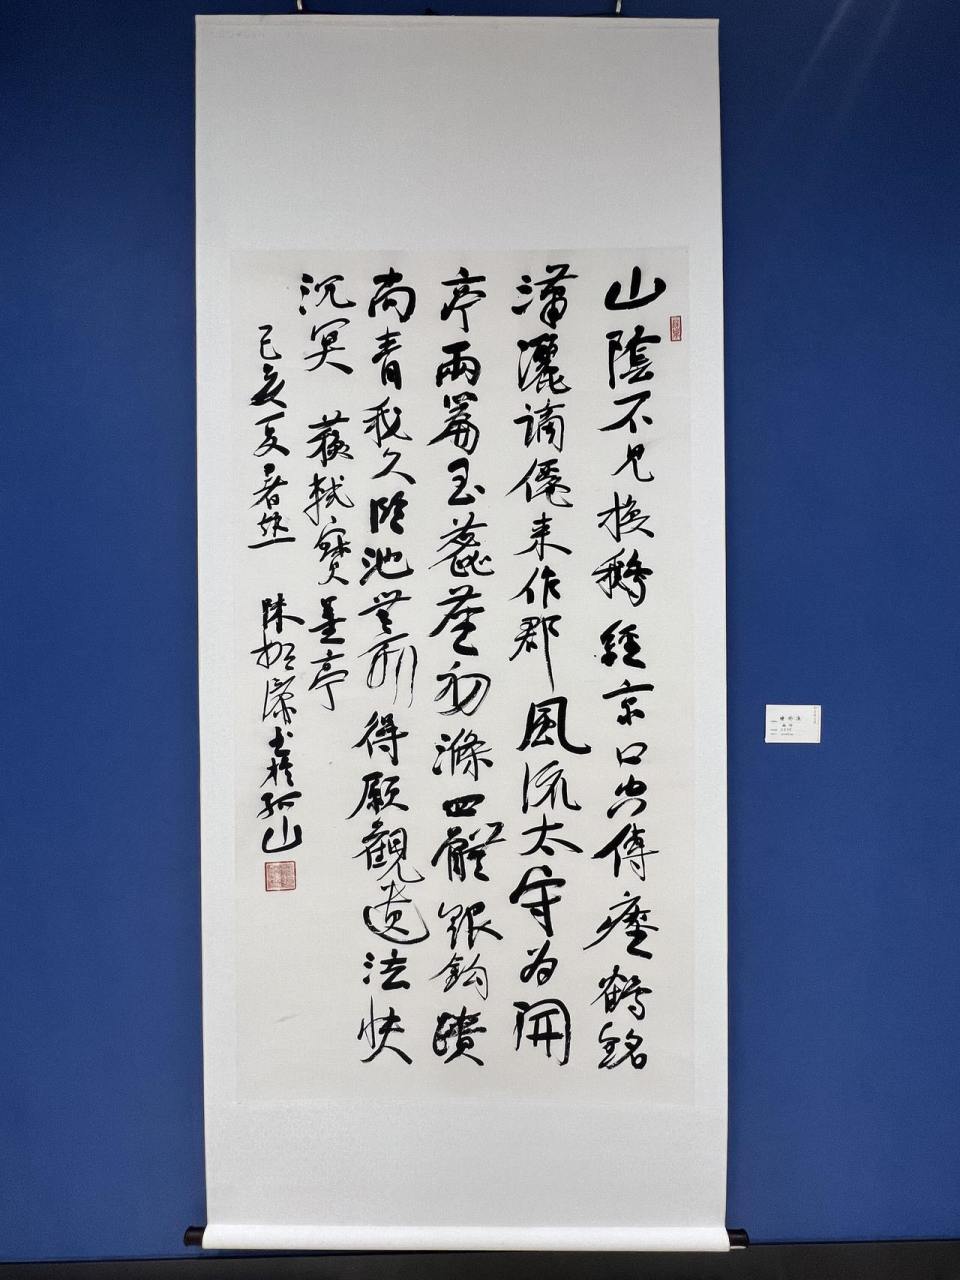 山陰不見換鵝經京口空傳瘞鶴銘
瀟灑謫僊来作郡風流太守为開
亭兩篇玉蕊塵初滌四體銀鈎蹟
尚青我久臨池無所得願觀遺法快
沉冥 蘇軾寶墨亭
己亥夏暑 書於孤山